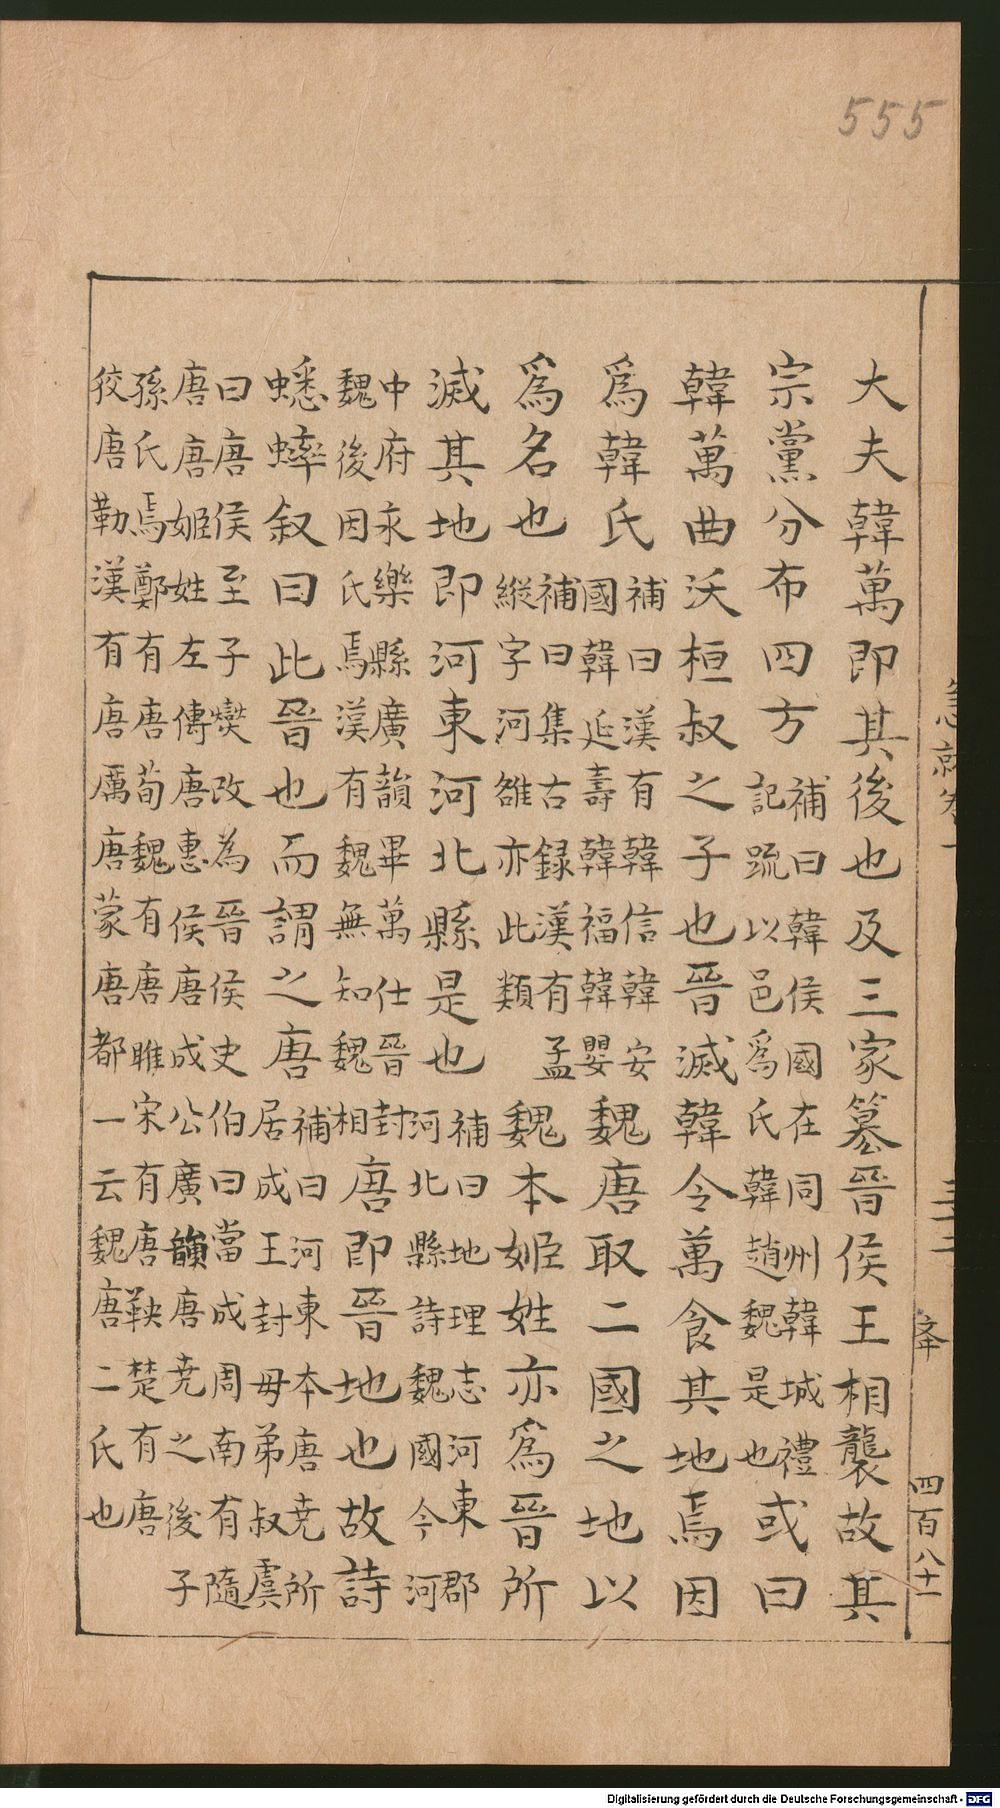 555
大夫韓萬即其後也及三家篡晉侯王相襲故其
宗黨分布四方補曰韓侯國在同州韓城禮記䟽以邑爲氏韓趙魏是也或曰
韓萬曲沃桓叔之子也晉滅韓令萬食其地焉因
爲韓氏補曰漢有韓信韓安國韓延壽韓福韓嬰魏唐取二國之地以
爲名也補曰集古録漢有孟縱字河雒亦此類魏本姬姓亦爲晉所
滅其地即河東河北縣是也補曰地理志河東郡河北縣詩魏國今河
中府永樂縣廣韻畢萬仕晉封魏後因氏焉漢有魏無知魏相唐即晉地也故詩
蟋蟀叙曰此晉也而謂之唐補曰河東本唐尭所居成王封毋弟叔虞
曰唐侯至子燮改為晉侯史伯曰當成周南有隨
唐唐姬姓左傳唐惠侯唐成公廣韻唐尭之後子
孫氏焉鄭有唐苟魏有唐雎宋有唐鞅楚有唐
狡唐勒漢有唐厲唐蒙唐都一云魏唐二氏也
四百八十一
Digitalisierung gefördert durch die Deutsche Forschungsgemeinschaft - DFG